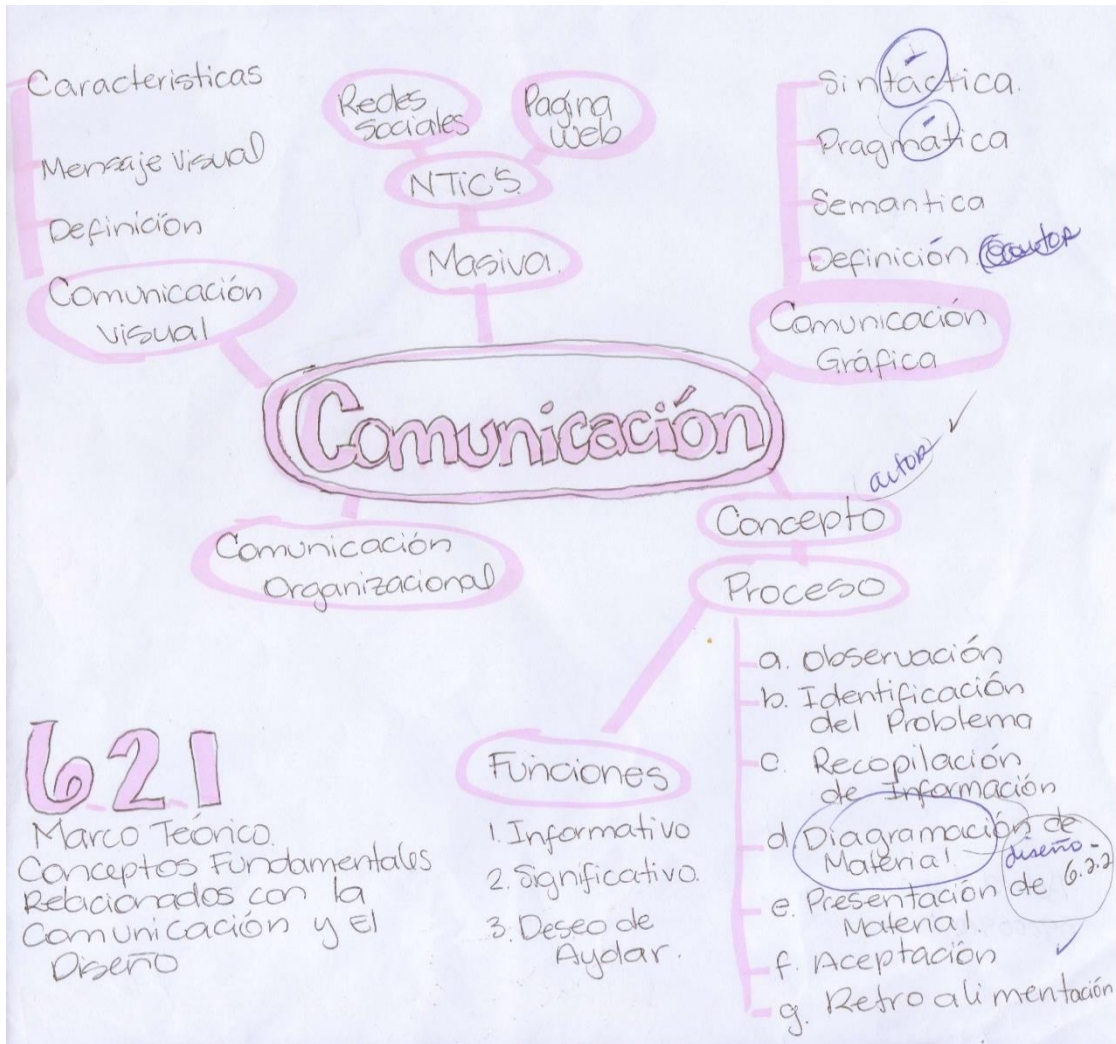 Caracteristicas
Mensaje visual
Definición
Comunicación
visual
Redes
sociales
Pagina
web
NTiC'S
Masiva.
Sintáctica.
Pragmática
Semantica
Definición
Comunicación
Gráfica
Comunicación
autor
Concepto
Comunicación
Organizacional
Proceso
a. Observación
b. Identificación
del Problema
c. Recopilación
de Información
d Diagramación de
Material
diseño -
6.2.2
e. Presentación de
Material.
f. Aceptación
g. Retroalimentación
Funciones
1. Informativo
2. Significativo.
3. Deseo de
Aydar.
6.2.1
Marco Teórico.
Conceptos Fundamentales
Relacionados con la
Comunicación y El
Diseño